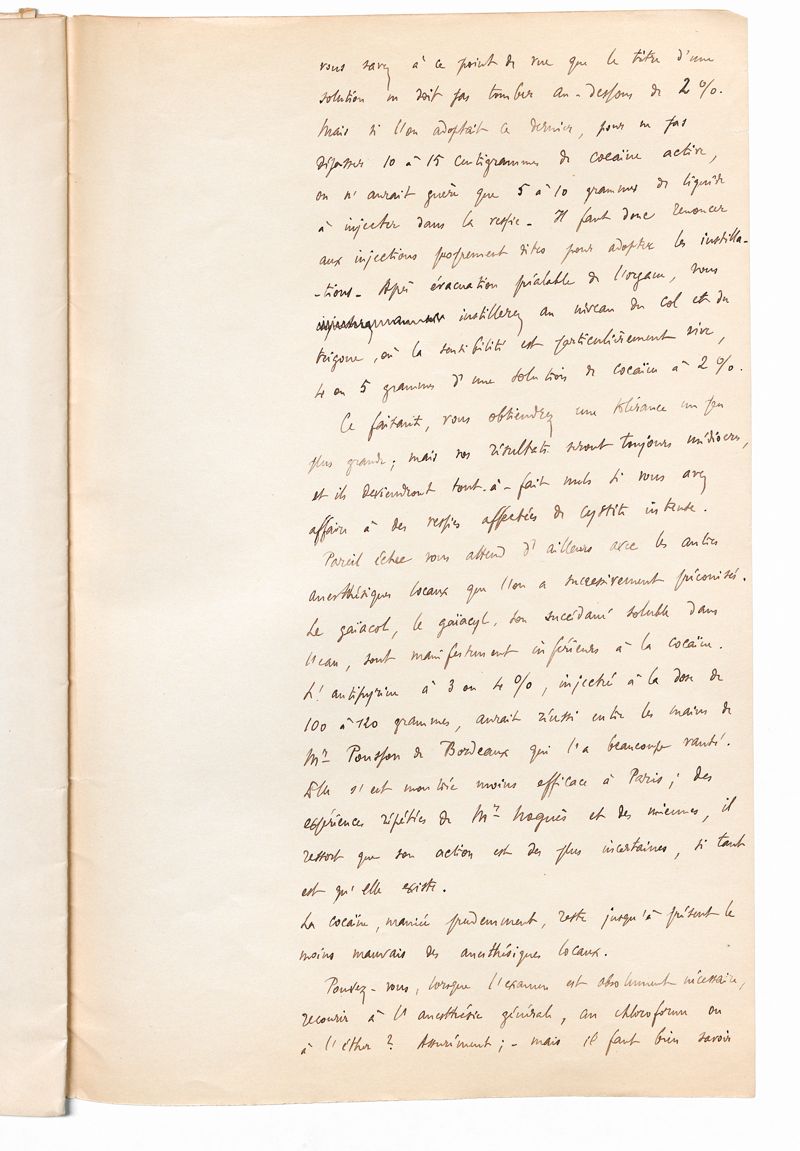 vous savez à ce point de vue que le titre d'une
solution ne doit pas tomber au-dessous de 2 %.
Mais si l'on adoptait ce dernier, pour ne pas
dépasser 10 à 15 centigrammes de cocaïne active,
on n'aurait guère que 5 à 10 grammes de liquide
à injecter dans la vessie - Il faut donc renoncer
aux injections proprement dites pour adopter les instilla-
-tions - Après évacuation préalable de l'organe, vous
instillerez au niveau du col et du
trigone, où la sensibilité est particulièrement vive,
4 ou 5 grammes d'une solution de cocaïne à 2 %.
Ce faisant, vous obtiendrez une tolérance un peu
plus grande; mais vos résultats seront toujours médiocres,
et ils deviendront tout-à-fait nuls si vous avez
affaire à des vessies affectées de cystite intense.
Pareil échec vous attend d'ailleurs avec les autres
anesthésiques locaux que l'on a successivement préconisés.
Le gaïacol, le gaïacyl, son succédané soluble dans
l'eau, sont manifestement inférieurs à la cocaïne.
L'antipyrine à 3 ou 4 %, injectée à la dose de
100 à 120 grammes, aurait réussi entre les mains de
Mr Pousson de Bordeaux qui l'a beaucoup vanté.
Elle s'est montrée moins efficace à Paris; des
expériences répétées de Mr Noguès et des miennes, il
ressort que son action est des plus incertaines, si tant
est qu'elle existe.
La cocaïne, maniée prudemment, reste jusqu'à présent le
moins mauvais des anesthésiques locaux.
Pouvez-vous, lorsque l'examen est absolument nécessaire,
recourir à l'anesthésie générale, au chloroforme ou
à l'éther? Assurément; - mais il faut bien savoir